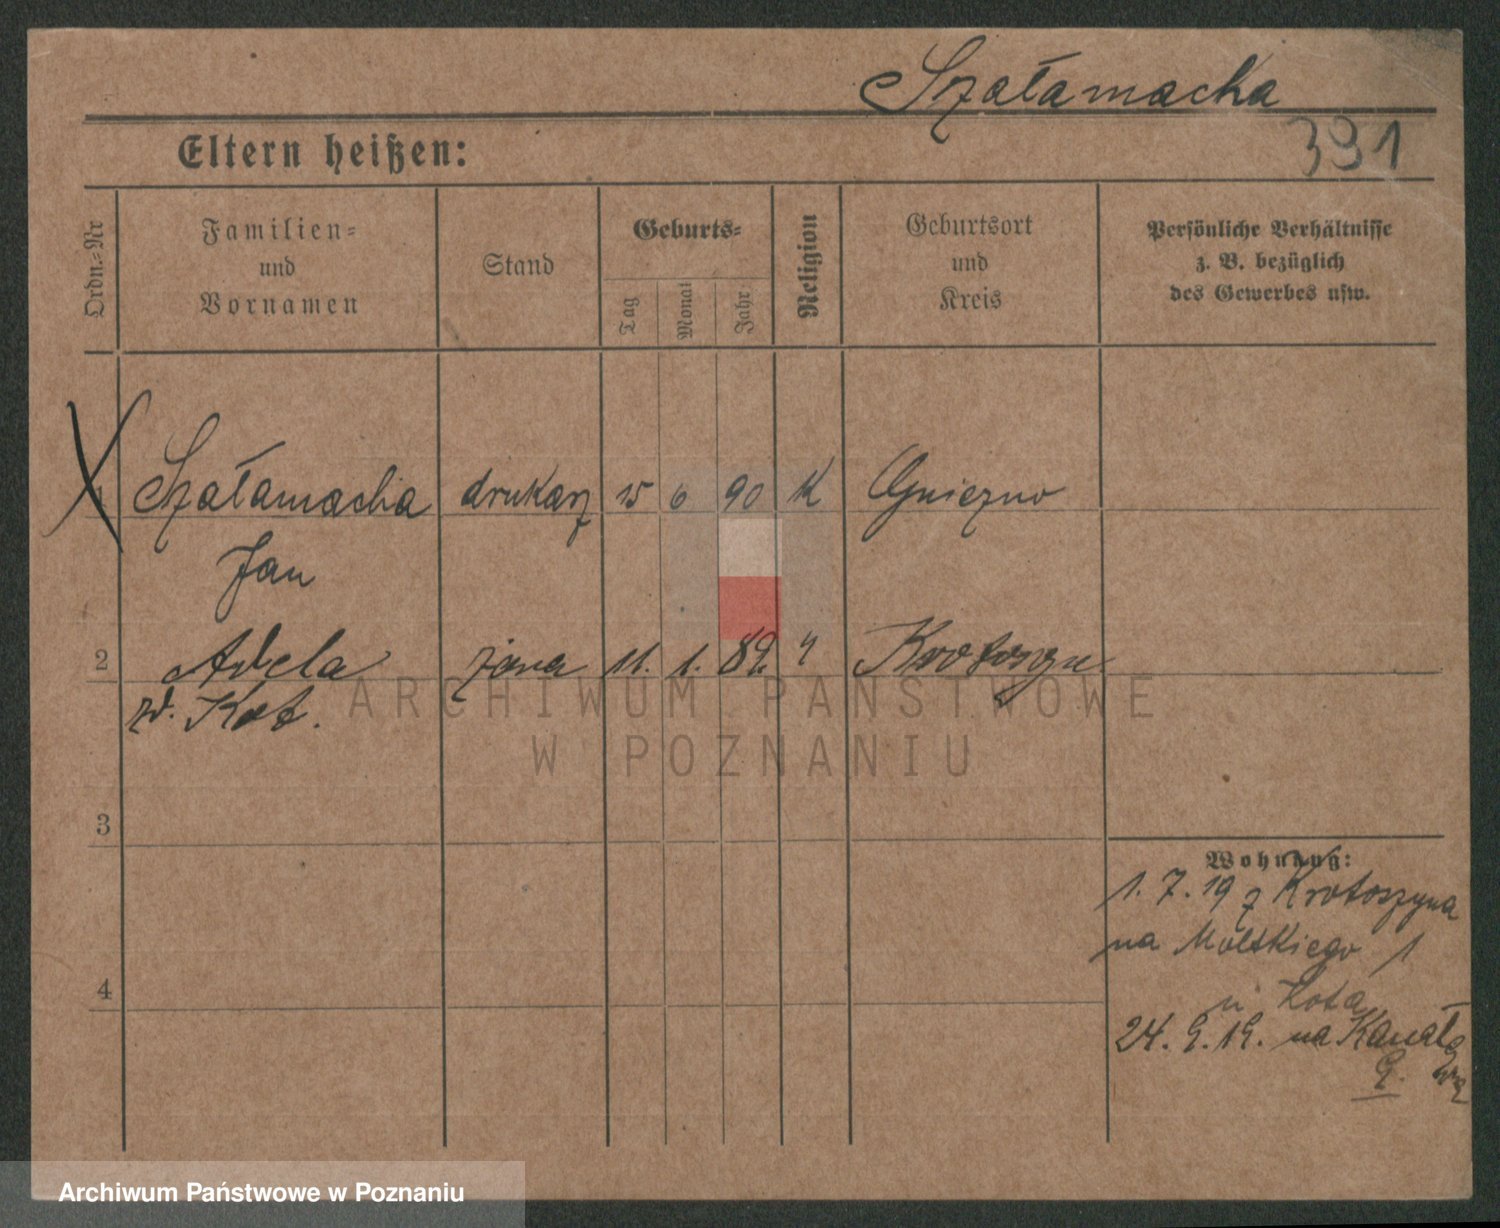 Szałamacha
391
Eltern heißen:
Ordn.=Nr
Familien=
und
Vornamen
Stand
Geburts=
Tag
Monat
Jahr
Religion
Geburtsort
und
Kreis
Persönliche Verhältnisse
z. B. bezüglich
des Gewerbes usw.
1 Szałamacha drukarz 15 6 90 K Gniezno
Jan
2 Adela żona 11. 1. 89. " Krotoszyn
zd. Kot.
ARCHIWUM PAŃSTWOWE
W POZNANIU
3
Wohnung:
1. 7. 19 z Krotoszyna
na Moltkiego 1
4
u Kota
24. 9. 19. na Kanałową
9.
Archiwum Państwowe w Poznaniu